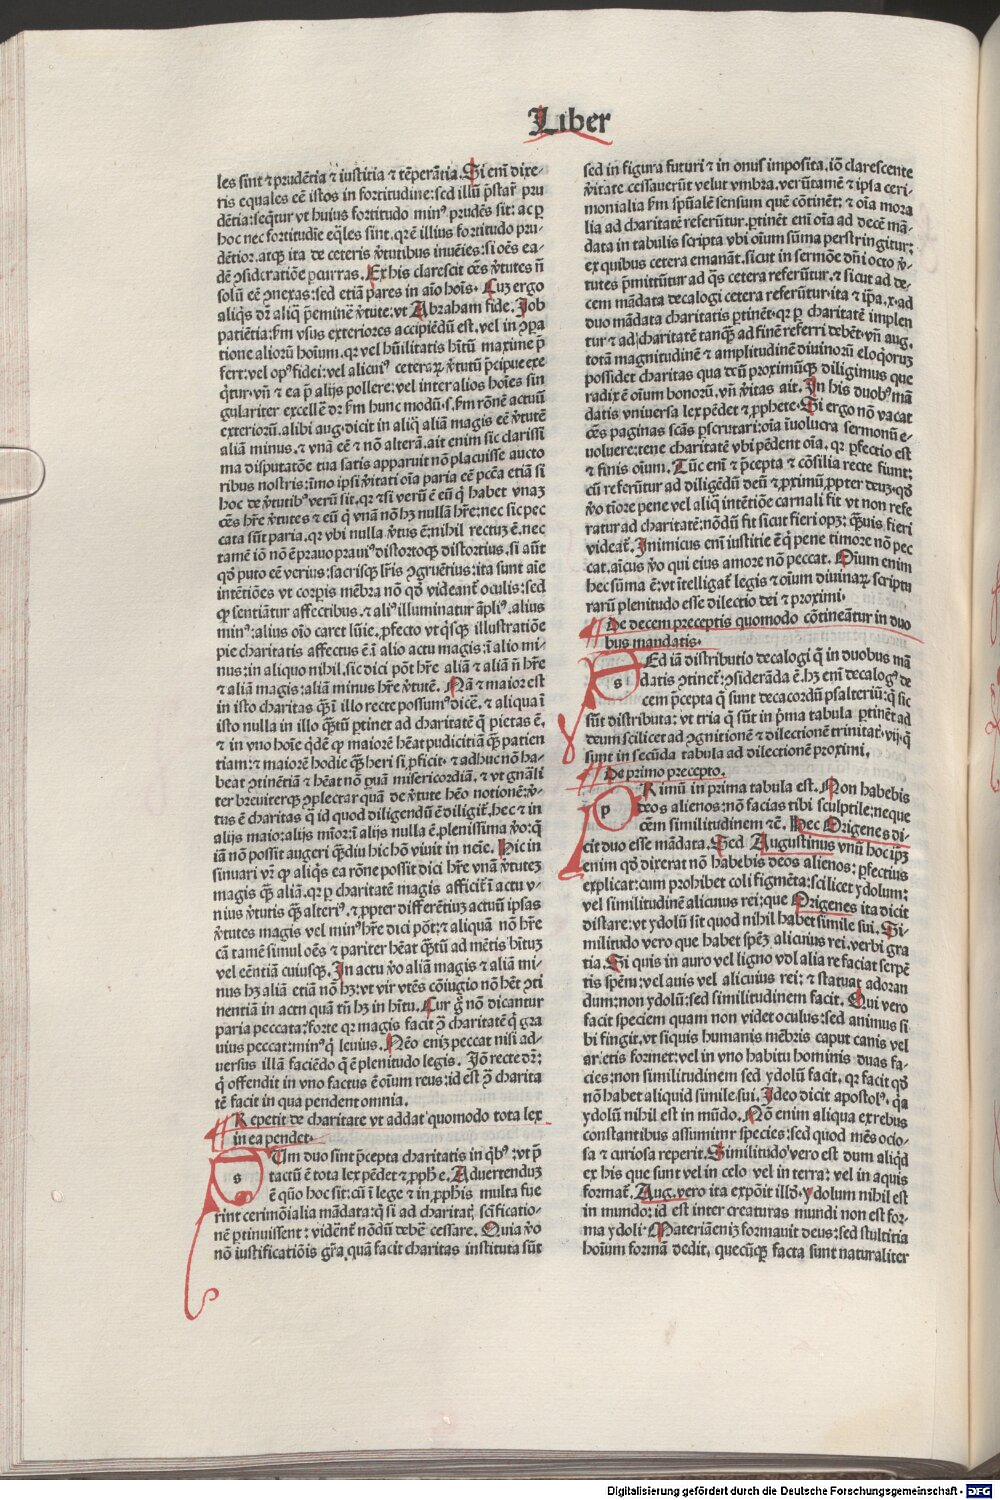 Liber
les sint ⁊ prudētia ⁊ iustitia ⁊ tēperātia. Si eni̅ dixe-
ris equales eē istos in fortitudine: sed illū p̄stat᷑ pru
dētia: seq̄tur vt huius fortitudo minꝰ prudēs sit: ac ꝑ
hoc nec fortitudīe eq̄les sint. qꝛ ē illius fortitudo pru-
dētior. atqꝫ ita de ceteris v̄tutibus inuēies: si oēs ea-
dē ꝯsideratiōe ꝑcurras. Ex his clarescit oēs v̄tutes nō
solū eē ꝯnexas: sed etiā pares in aīo hoīs. Cuꝫ ergo
aliqͥs dr̄ aliq̄ p̄eminē v̄tute: vt Abraham fide. Job
patiētia: ẜm vsus exteriores accipiēdū est. vel in ꝯpa
tione aliorū hoīum. qꝛ vel hūilitatis hītū maxime p̄
fert: vel opꝰ fidei: vel alicuiꝰ ceteraꝝ v̄tutū p̄cipue exe
qͥtur. vn̄ ⁊ ea p̄ alijs pollere: vel inter alios hoīes sin
gulariter excellē dr̄ ẜm hunc modū. s. ẜm rōnē actuū
exteriorū. alibi aug. dicit in aliq̄ aliā magis eē v̄tutē
aliā minus. ⁊ vnā eē ⁊ nō alterā. ait enim sic clarissi
ma disputatōe tua satis apparuit nō placuisse aucto
ribus nostris: īmo ipsi v̄itati oīa paria eē pctā etiā si
hoc de v̄tutibꝰ verū sit. qꝛ ⁊ si verū ē eū qͥ habet vnaꝫ
oēs hr̄e v̄tutes ⁊ eū qͥ vnā nō hꝫ nullā hr̄e: nec sic pec
cata sūt paria. qꝛ vbi nulla v̄tus ē: nihil rectuꝫ ē. nec
tamē iō nō ē prauo prauiꝰ distortoqꝫ distortius. si aūt
qḋ puto eē verius: sacrisqꝫ lr̄is ꝯgruētius: ita sunt aīe
intētiōes vt corpis mēbra nō qḋ videant᷑ oculis: sed
ꝙ sentiātur affectibus. ⁊ aliꝰ illuminatur āpliꝰ. alius
minꝰ: alius oīo caret lūie. ꝓfecto vt qͥsqꝫ illustratiōe
pie charitatis affectus ē ī alio actu magis: ī alio mi-
nus: in aliquo nihil. sic dici pōt hr̄e aliā ⁊ aliā nō hr̄e
⁊ aliā magis: aliā minus hr̄e v̄tutē. Nā ⁊ maior est
in isto charitas qꝫ ī illo recte possumꝰ dicē. ⁊ aliqua ī
isto nulla in illo q̄ꝫtū ꝑtinet ad charitatē q̄ pietas ē.
⁊ in vno hoīe qͥdē ꝙ maiorē hēat pudicitiā q̄ꝫ patien
tiam: ⁊ maiorē hodie q̄ꝫ heri si ꝓficit. ⁊ adhuc nō ha-
beat ꝯtinētiā ⁊ hēat nō ꝑuā misericordiā. ⁊ vt gn̄ali
ter breuiterqꝫ ꝯplectar quā de v̄tute hēo notionē: v̄-
tus ē charitas q̄ id quod diligendū ē diligit᷑. hec ⁊ in
alijs maior: alijs mīor: ī alijs nulla ē. plenissima v̄o: q̄
iā nō possit augeri q̄ꝫdiu hic hō viuit in neīe. Hic in
sinuari vr̄ ꝙ aliqͥs ea rōne possit dici hr̄e vnā v̄tutez
magis q̄ꝫ aliā. qꝛ ꝑ charitatē magis afficit᷑ ī actu v-
nius v̄tutis q̄ꝫ alteriꝰ. ⁊ ꝓpter differētiaꝫ actuū ipsas
v̄tutes magis vel minꝰ hr̄e dici pōt: ⁊ aliquā nō hr̄e
cū tamē simul oēs ⁊ pariter hēat q̄ꝫtū ad mētis hītuꝫ
vel eēntiā cuiusqꝫ. In actu v̄o aliā magis ⁊ aliā mi-
nus hꝫ aliā etiā nō hꝫ: vt vir vtēs cōiugio nō hēt ꝯti
nentiā in actu quā tn̄ hꝫ in hītu. Cur gͦ nō dicantur
paria peccata: forte qꝛ magis facit ꝯ̄ charitatē qͥ gra
uius peccat: minꝰ qͥ leuius. Nēo enīꝫ peccat nisi ad-
uersus illā faciēdo q̄ ē plenitudo legis. Iō recte dr̄:
qͥ offendit in vno factus ē oīum reus: id est ꝯ̄ charita
tē facit in qua pendent omnia.
Repetit de charitate vt addat quomodo tota lex
in ea pendet.
s Um duo sint p̄cepta charitatis in qͥbꝰ: vt p̄
tactū ē tota lex pēdet ⁊ ꝓph̄e. Aduertenduꝫ
ē quō hoc sit: cū ī lege ⁊ in ꝓphīs multa fue
rint cerimōialia mādata: q̄ si ad charitat᷑ sctīficatio-
nē ꝑtinuissent: vident᷑ nōdū debē cessare. Quia v̄o
nō iustificatiōis grā. quā facit charitas instituta sūt
sed in figura futuri ⁊ in onus imposita. iō clarescente
v̄itate cessauerūt velut vmbra. verūtamē ⁊ ipsa ceri-
monialia ẜm spūalē sensum quē cōtinēt: ⁊ oīa mora
lia ad charitatē referūtur. ꝑtinēt eni̅ oīa ad decē mā-
data in tabulis scripta vbi oīum sūma perstringitur:
ex quibus cetera emanāt. sicut in sermōe dn̄i octo v̄-
tutes p̄mittūtur ad q̄s cetera referūtur. ⁊ sicut ad de-
cem mādata decalogi cetera referūtur. ita ⁊ ip̄a. x. ad
duo mādata charitatis ꝑtinēt. qꝛ ꝑ charitatē implen
tur ⁊ ad charitatē tanqꝫ ad finē referri debēt. vn̄ aug.
totā magnitudinē ⁊ amplitudinē diuinorū eloq̄oruꝫ
possidet charitas qua deū proximūqꝫ diligimus que
radix ē oīum bonorū. vn̄ v̄itas ait. In his duobꝰ mā
datis vniuersa lex pēdet ⁊ ꝓphete. Si ergo nō vacat
oēs paginas scās ꝑscrutari: oīa īuolucra sermonū e-
uoluere: tene charitatē vbi pēdent oīa. qꝛ ꝑfectio est
⁊ finis oīum. Tūc eni̅ ⁊ p̄cepta ⁊ cōsilia recte fiunt:
cū referūtur ad diligēdū deū ⁊ ꝓximū ꝓpter deuꝫ. qḋ
v̄o tīore pene vel aliq̄ intētiōe carnali fit vt non refe
ratur ad charitatē: nōdū fit sicut fieri opꝫ: q̄ꝫuis fieri
videat᷑. Inimicus eni̅ iustitie ē qͥ pene timore nō pec
cat. aīcus v̄o qui eius amore nō peccat. Oīum enim
hec sūma ē: vt ītelligat᷑ legis ⁊ oīum diuinaꝝ scriptu
rarū plenitudo esse dilectio dei ⁊ proximi.
De decem preceptis quomodo cōtineātur in duo
bus mandatis.
s Ed iā distributio decalogi q̄ in duobus mā
datis ꝯtinet᷑: ꝯsiderāda ē. hꝫ eni̅ decalogꝰ de
cem p̄cepta q̄ sunt decacordū psalteriū: q̄ sic
sūt distributa: vt tria q̄ sūt in p̄ma tabula ꝑtinēt ad
deum scilicet ad ꝯgnitionē ⁊ dilectionē trinitat᷑. vij. q̄
sunt in secūda tabula ad dilectionē proximi.
De primo precepto.
p Rimū in prima tabula est. Non habebis
deos alienos: nō facias tibi sculptile: neque
oēm similitudinem ⁊ē. Hec Origenes di-
cit duo esse mādata. Sed Augustinus vnū hoc ipꝫ
enim qḋ dixerat nō habebis deos alienos: ꝑfectius
explicat: cum prohibet coli figmēta: scilicet ydolum:
vel similitudinē alicuius rei: que Origenes ita dicit
distare: vt ydolū sit quod nihil habet simile sui. Si-
militudo vero que habet spēꝫ alicuius rei. verbi gra
tia. Si quis in auro vel ligno vel alia re faciat serpē
tis spēm: vel auis vel alicuius rei: ⁊ statuat adoran
dum: non ydolū: sed similitudinem facit. Qui vero
facit speciem quam non videt oculus: sed animus si
bi fingit. vt siquis humanis mēbris caput canis vel
arietis formet: vel in vno habitu hominis duas fa-
cies: non similitudinem sed ydolū facit. qꝛ facit qḋ
nō habet aliquid simile sui. Ideo dicit apostolꝰ. qꝛ
ydolū nihil est in mūdo. Nō enim aliqua ex rebus
constantibus assumitur species: sed quod mēs ocio-
sa ⁊ curiosa reperit. Similitudo vero est dum aliqḋ
ex his que sunt vel in celo vel in terra: vel in aquis
format᷑. Aug. vero ita expōit illḋ. ydolum nihil est
in mundo: id est inter creaturas mundi non est for-
ma ydoli. Materiā enīꝫ formauit deus: sed stultitia
hoīum formā dedit. quecūqꝫ facta sunt naturaliter
Digitalisierung gefördert durch die Deutsche Forschungsgemeinschaft - DFG